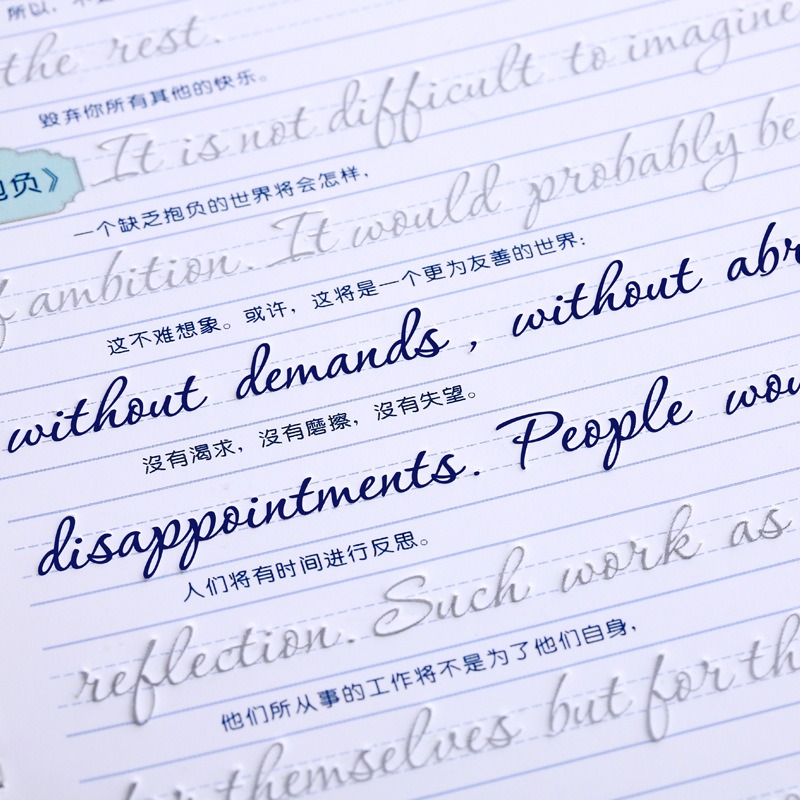 所以，不
the rest.
毁弃你所有其他的快乐。
It is not difficult to imagine
负》
一个缺乏抱负的世界将会怎样，
ambition. It would probably be
这不难想象。或许，这将是一个更为友善的世界：
without demands, without abr
沒有渴求，沒有磨擦，沒有失望。
disappointments. People wou
人们将有时间进行反思。
reflection. Such work as
他们所从事的工作将不是为了他们自身，
themselves but for th